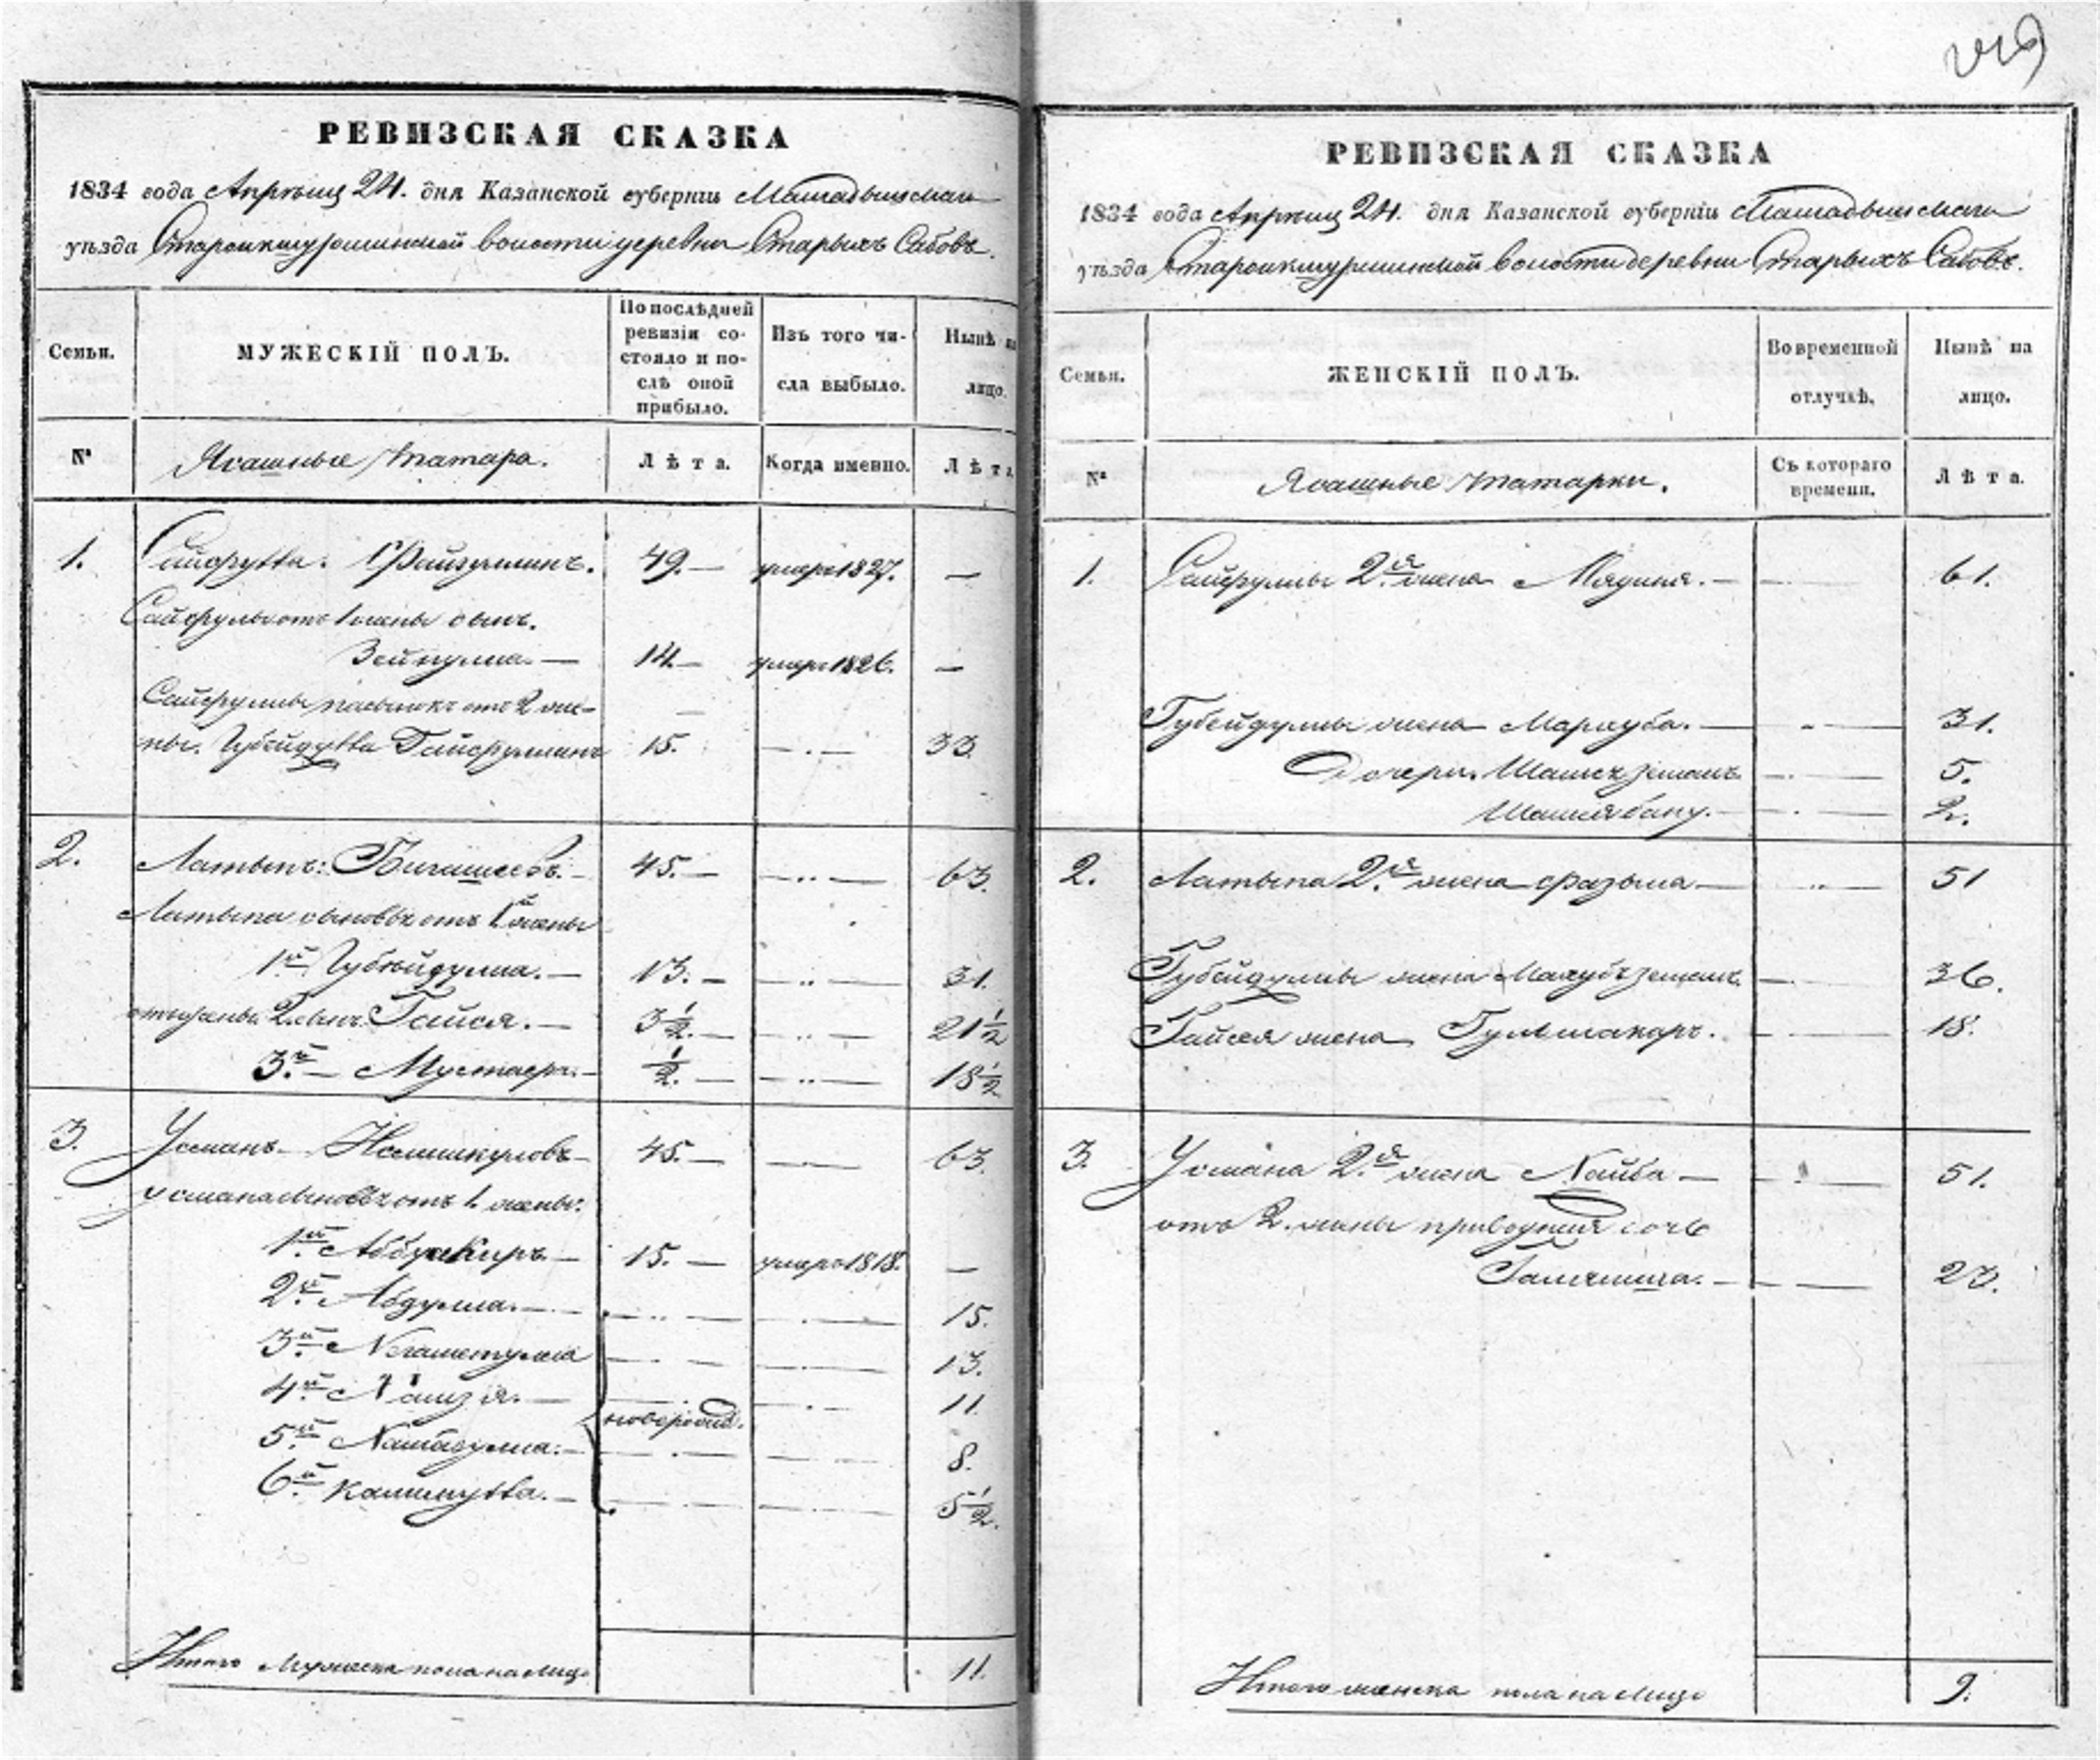 219
РЕВИЗСКАЯ СКАЗКА
1834 года Апрѣля 24. дня Казанской губерніи Мамадышскаго
уѣзда Староикшурминской волости деревни Старыхъ Сабовъ.
Семьи.
МУЖЕСКІЙ ПОЛЪ.
По послѣдней
ревизіи со-
стояло и по-
слѣ оной
прибыло.
Изъ того чи-
сла выбыло.
Нынѣ на
лицо.
№
Ясашные татара.
Лѣта.
Когда именно.
Лѣта
1. Сайфулла. Файзуллинъ. 49.— умеръ 1827. —
Сайфулы отъ 1 жены сынъ.
14.— умеръ 1826. —
Сайфуллы пасынокъ отъ 2 же-
ны. Губейдулла Гайфуллинъ 15. 33
2. Латыпъ: Бигашевъ. 45.— 63.
Латыпа сыновья отъ 1й жены
1й Губейдулла.— 13.— 31.
отъ жены 2. сынъ Гайся.— 3½.— 21½
3й— Мустаеръ.— ½.— 18½
3. Усманъ 45.— 63.
Усмана сыновья отъ 1. жены.
1й 15.— умеръ 1818. —
2й Абдулла.— 15.
3й Нигаметулла 13.
4й 11.
новорожд.
5й 8.
6й 5½.
Итого Мужеска пола на лицо 11.
РЕВИЗСКАЯ СКАЗКА
1834 года Апрѣля 24. дня Казанской губерніи Мамадышскаго
уѣзда Староикшурминской волости деревни Старыхъ Сабовъ.
Семьи.
ЖЕНСКІЙ ПОЛЪ.
Во временной
отлучкѣ.
Нынѣ на
лицо.
№
Ясашные татарки.
Съ котораго
времени.
Лѣта.
1. Сайфуллы 2я жена Мядиня.— 61.
Губейдуллы жена Мархуба.— 31.
Дочери. 5.
Шамсябану.— 2.
2. Латыпа 2я жена Фазыла— 51
Губейдуллы жена 36.
Гайсея жена 18.
3. Усмана 2я жена 51.
отъ 2. жены приводная дочь
23.
Итого женска пола на лицо 9.